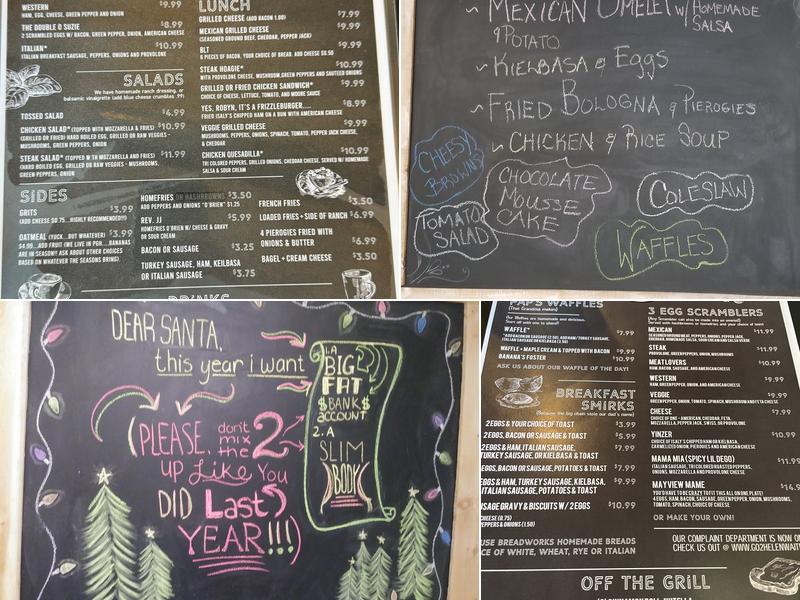 WESTERN $9.99
HAM, EGG, CHEESE, GREEN PEPPER AND ONION
THE DOUBLE O SUZIE $8.99
2 SCRAMBLED EGGS W/ BACON, GREEN PEPPER, ONION, AMERICAN CHEESE
ITALIAN* $10.99
ITALIAN BREAKFAST SAUSAGE, PEPPERS, ONIONS AND PROVOLONE
SALADS
We have homemade ranch dressing, or
balsamic vinaigrette (add blue cheese crumbles .99)
TOSSED SALAD $4.99
CHICKEN SALAD* (TOPPED WITH MOZZARELLA & FRIES) $10.99
(GRILLED OR FRIED) HARD BOILED EGG, GRILLED OR RAW VEGGIES -
MUSHROOMS, PEPPERS, ONION
STEAK SALAD* (TOPPED W TH MOZZARELLA AND FRIES) $11.99
(HARD BOILED EGG, GRILLED OR RAW VEGGIES - MUSHROOMS,
PEPPERS, ONION
LUNCH
GRILLED CHEESE (ADD BACON 1.00) $7.99
MEXICAN GRILLED CHEESE $9.99
(SEASONED GROUND BEEF, CHEDDAR, PEPPER JACK)
BLT $9.99
6 PIECES OF BACON, YOUR CHOICE OF BREAD. ADD CHEESE $0.50
STEAK HOAGIE* $10.99
WITH PROVOLONE CHEESE, MUSHROOM, GREEN PEPPERS AND SAUTEED ONIONS
GRILLED OR FRIED CHICKEN SANDWICH* $9.99
CHOICE OF CHEESE, LETTUCE, TOMATO, AND MOORE SAUCE
YES, ROBYN, IT'S A FRIZZLEBURGER.... $8.99
FRIED ISALY'S CHIPPED HAM ON A BUN WITH AMERICAN CHEESE
VEGGIE GRILLED CHEESE $9.99
MUSHROOMS, PEPPERS, ONIONS, SPINACH, TOMATO, PEPPER JACK CHEESE,
& CHEDDAR
CHICKEN QUESADILLA* $10.99
TRI COLORED PEPPERS, GRILLED ONIONS, CHEDDAR CHEESE, SERVED W/ HOMEMADE
SALSA & SOUR CREAM
SIDES
GRITS $3.99
(ADD CHEESE $0.75...HIGHLY RECOMMENDED!!!)
OATMEAL (YUCK...BUT WHATEVER) $3.99
$4.99...ADD FRUIT (WE LIVE IN PGH.....BANANAS
ARE IN SEASON!! ASK ABOUT OTHER CHOICES
BASED ON WHATEVER THE SEASONS BRING).
HOMEFRIES OR HASHBROWNS $3.50
ADD PEPPERS AND ONIONS "O'BRIEN" $1.25
REV. JJ $5.99
HOMEFRIES O'BRIEN W/ CHEESE & GRAVY
OR SOUR CREAM
BACON OR SAUSAGE $3.25
TURKEY SAUSAGE, HAM, KEILBASA
OR ITALIAN SAUSAGE $3.75
FRENCH FRIES $3.50
LOADED FRIES + SIDE OF RANCH $6.99
4 PIEROGIES FRIED WITH
ONIONS & BUTTER $6.99
BAGEL + CREAM CHEESE $3.50
DRINKS
~ MEXICAN OMELET w/ HOMEMADE
SALSA
& POTATO
~ KIELBASA & EGGS
~ FRIED BOLOGNA & PIEROGIES
~ CHICKEN & RICE SOUP
CHEESY
BROWNS
CHOCOLATE
MOUSSE
CAKE
COLESLAW
TOMATO
SALAD
WAFFLES
DEAR SANTA,
this year i want
1. A
BIG
FAT
$BANK$
ACCOUNT
2. A
SLIM
BODY
(PLEASE, don't
mix
the 2
up Like You
DID Last
YEAR!!!)
PAP'S WAFFLES
(That Grandma makes)
Our Waffles are homemade and delicious.
Start off with one to share!!
WAFFLE* $7.99
WAFFLE + MAPLE CREAM & TOPPED WITH BACON $9.99
BANANA'S FOSTER $10.99
ASK US ABOUT OUR WAFFLE OF THE DAY!
BREAKFAST
SMIRKS
(Because the big chain stole our dad's name)
2 EGGS & YOUR CHOICE OF TOAST $3.99
2 EGGS, BACON OR SAUSAGE & TOAST $5.99
2 EGGS & HAM, ITALIAN SAUSAGE, $7.99
TURKEY SAUSAGE, OR KIELBASA & TOAST
EGGS, BACON OR SAUSAGE, POTATOES & TOAST $7.99
EGGS & HAM, TURKEY SAUSAGE, KIELBASA, $9.99
ITALIAN SAUSAGE, POTATOES & TOAST
SAUSAGE GRAVY & BISCUITS W/ 2 EGGS $10.99
CHEESE (0.75)
PEPPERS & ONIONS (1.50)
USE BREADWORKS HOMEMADE BREADS
OF WHITE, WHEAT, RYE OR ITALIAN
3 EGG SCRAMBLERS
(Any Scrambler can also be made into an omelet!)
Served with homefries or tomatoes and your choice of toast
MEXICAN $11.99
STEAK $11.99
PROVOLONE, GREEN PEPPERS, ONION, MUSHROOMS
MEATLOVERS $10.99
HAM, BACON, SAUSAGE, AND AMERICAN CHEESE
WESTERN $9.99
HAM, GREEN PEPPER, ONION, AND AMERICAN CHEESE
VEGGIE $9.99
GREEN PEPPER, ONION, TOMATO, SPINACH, MUSHROOM AND FETA CHEESE
CHEESE $7.99
CHOICE OF ONE - AMERICAN, CHEDDAR, FETA,
MOZZARELLA, PEPPER JACK, SWISS, OR PROVOLONE
YINZER $10.99
CHOICE OF ISALY'S CHIPPED HAM OR KIELBASA,
CARAMELIZED ONION, PEPPERS AND AMERICAN CHEESE
MAMA MIA (SPICY LIL DEGO) $11.99
ITALIAN SAUSAGE, TRI COLORED ROASTED PEPPERS,
ONIONS, MUSHROOMS, AND MOZZARELLA
MAYVIEW MAME $14.9
YOU'D HAVE TO BE CRAZY TO FIT THIS ALL ON ONE PLATE!
4 EGGS, HAM, BACON, SAUSAGE, GREEN PEPPER, ONION, MUSHROOMS,
TOMATO, SPINACH, CHOICE OF CHEESE
OR MAKE YOUR OWN!
OUR COMPLAINT DEPARTMENT IS NOW ON
CHECK US OUT @ WWW.GO2HELENWAIT
OFF THE GRILL